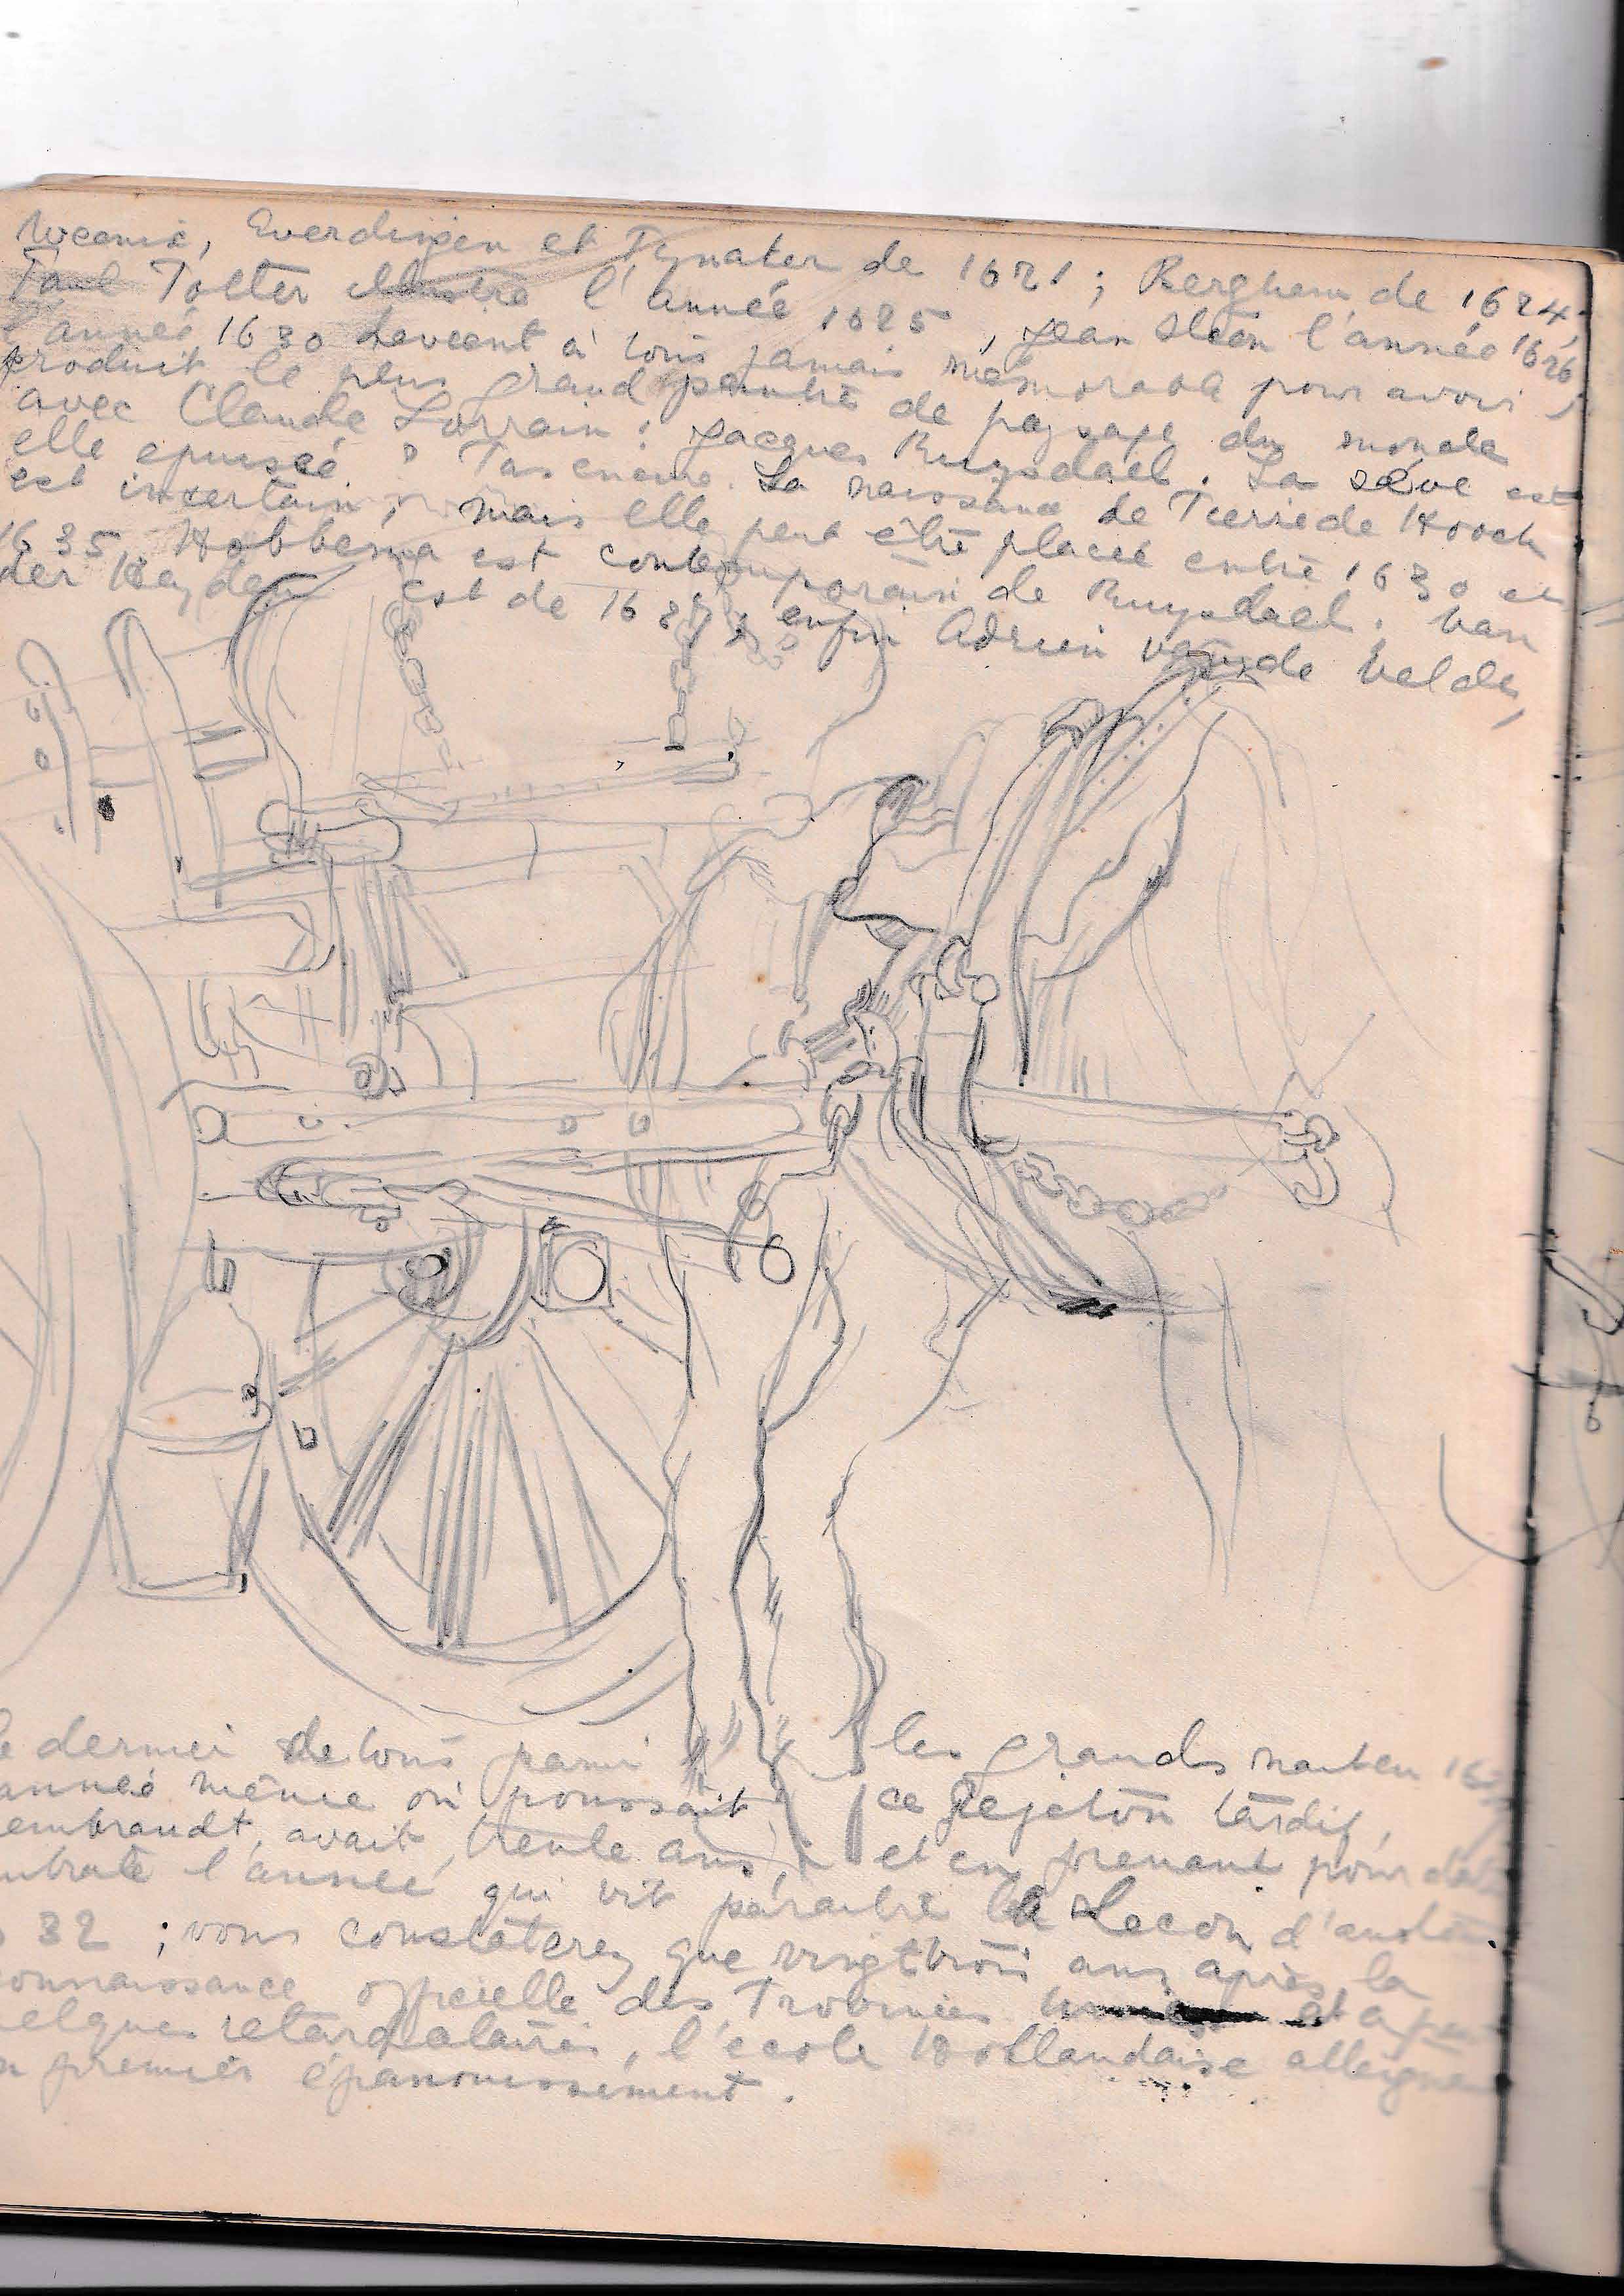 Weenix, Everdingen et Pynaker de 1621 ; Berghem de 1624,
Paul Potter illustre l'année 1625, Jean Steen l'année 1626,
l'année 1630 devient à tous jamais mémorable pour avoir
produit le plus grand peintre de paysage du monde
avec Claude Lorrain : Jacques Ruysdael. La sève est
elle epuisée ? Pas encore. La naissance de Pierre de Hooch
est incertain, mais elle peut être placée entre 1630 et
1635, Hobbema est contemporain de Ruysdael. Van
der Heyden est de 1637 ; enfin Adrien van de Velde,
le dernier de tous parmi les grands
année même où poussait ce rejeton tardif,
embrandt, avait trente ans, et en prenant pour
l'année qui vit paraitre la Lecon
32 ; vous constaterez que vingt trois ans après la
connaissance officielle des Provinces et a
elques retardataires, l'école Hollandaise
premier épanouissement.